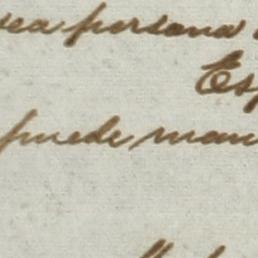 sea persona
Es
puede man